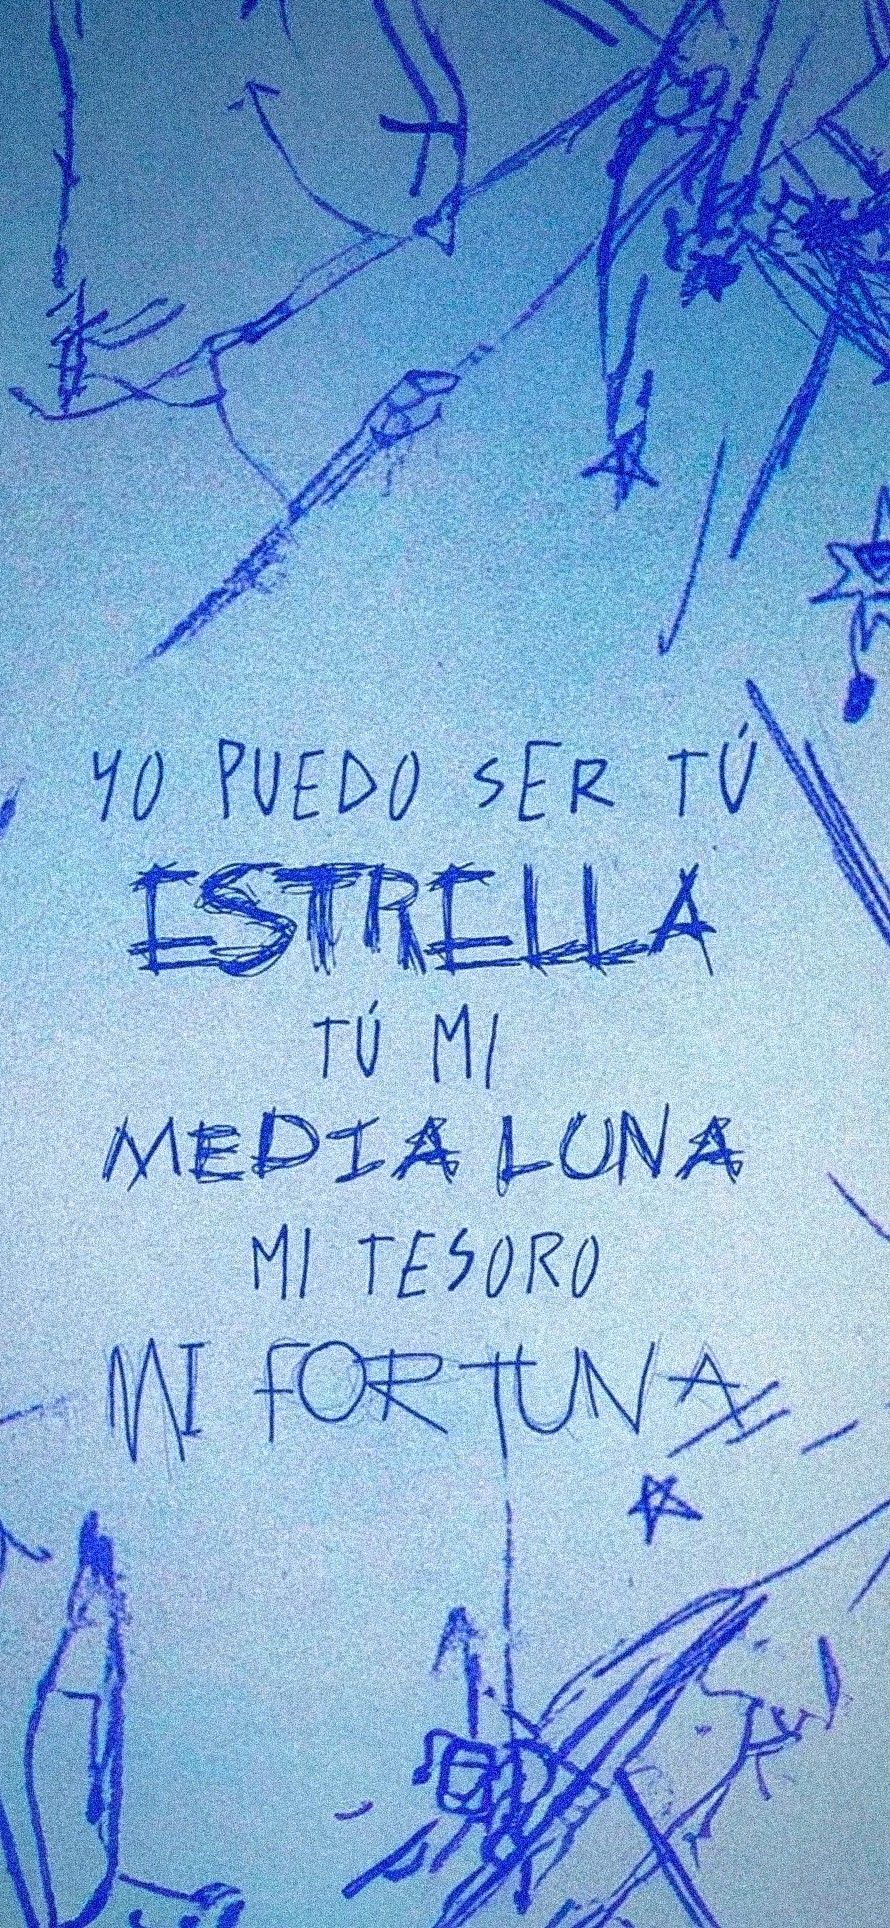 YO PUEDO SER TÚ
ESTRELLA
TÚ MI
MEDIA LUNA
MI TESORO
MI FORTUNA